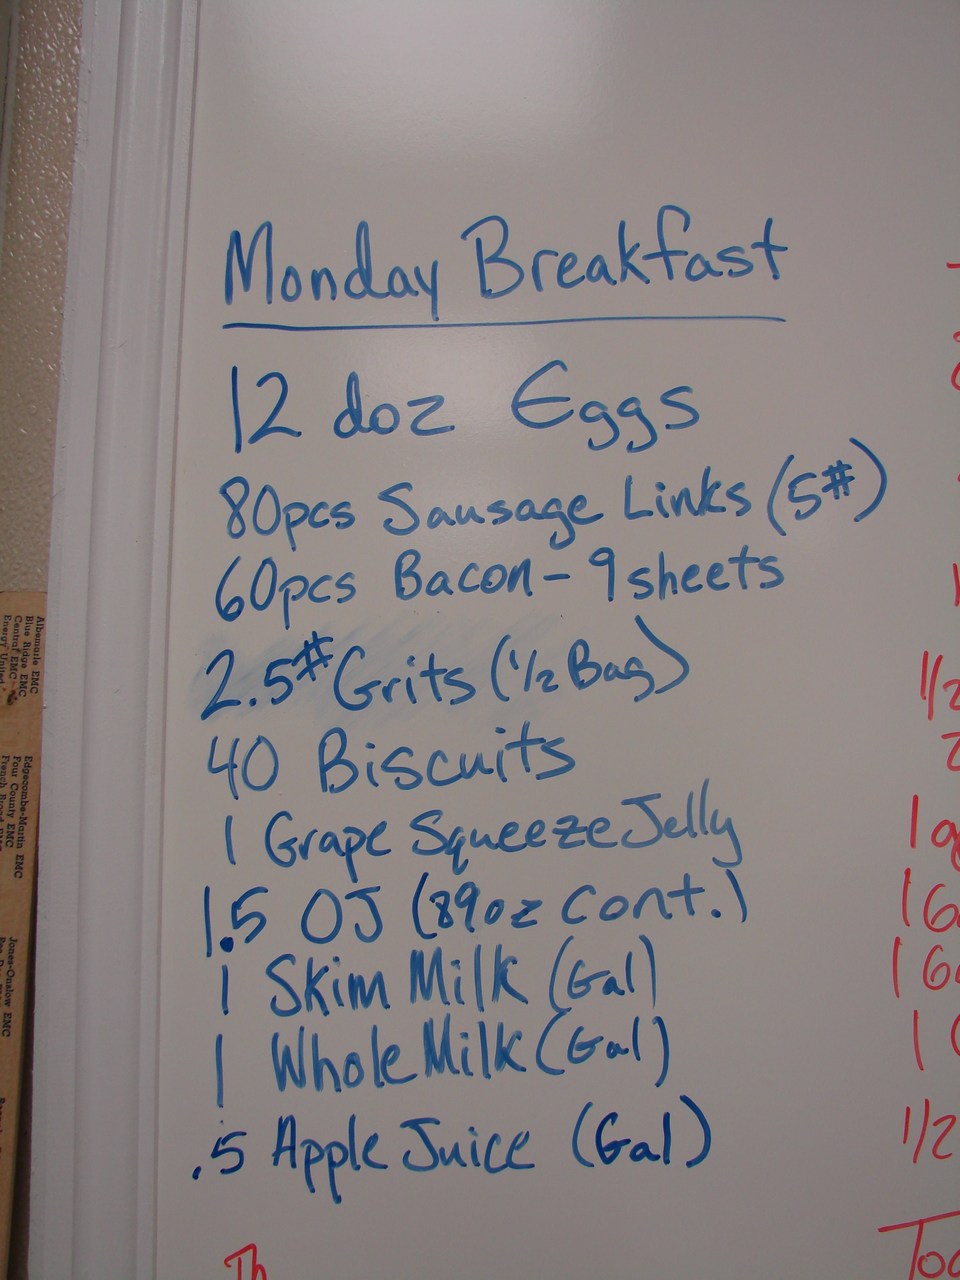 Monday Breakfast
12 doz Eggs
80pcs Sausage Links (5#)
60pcs Bacon - 9 sheets
2.5# Grits (1/2 Bag)
40 Biscuits
1 Grape Squeeze Jelly
1.5 OJ (89oz cont.)
1 Skim Milk (Gal)
1 Whole Milk (Gal)
.5 Apple Juice (Gal)
Albemarle EMC
Blue Ridge EMC
Central EMC
Energy United
Edgecombe-Martin EMC
Four County EMC
French Broad EMC
Jones-Onslow EMC
1/2
1
1
1
1
1/2